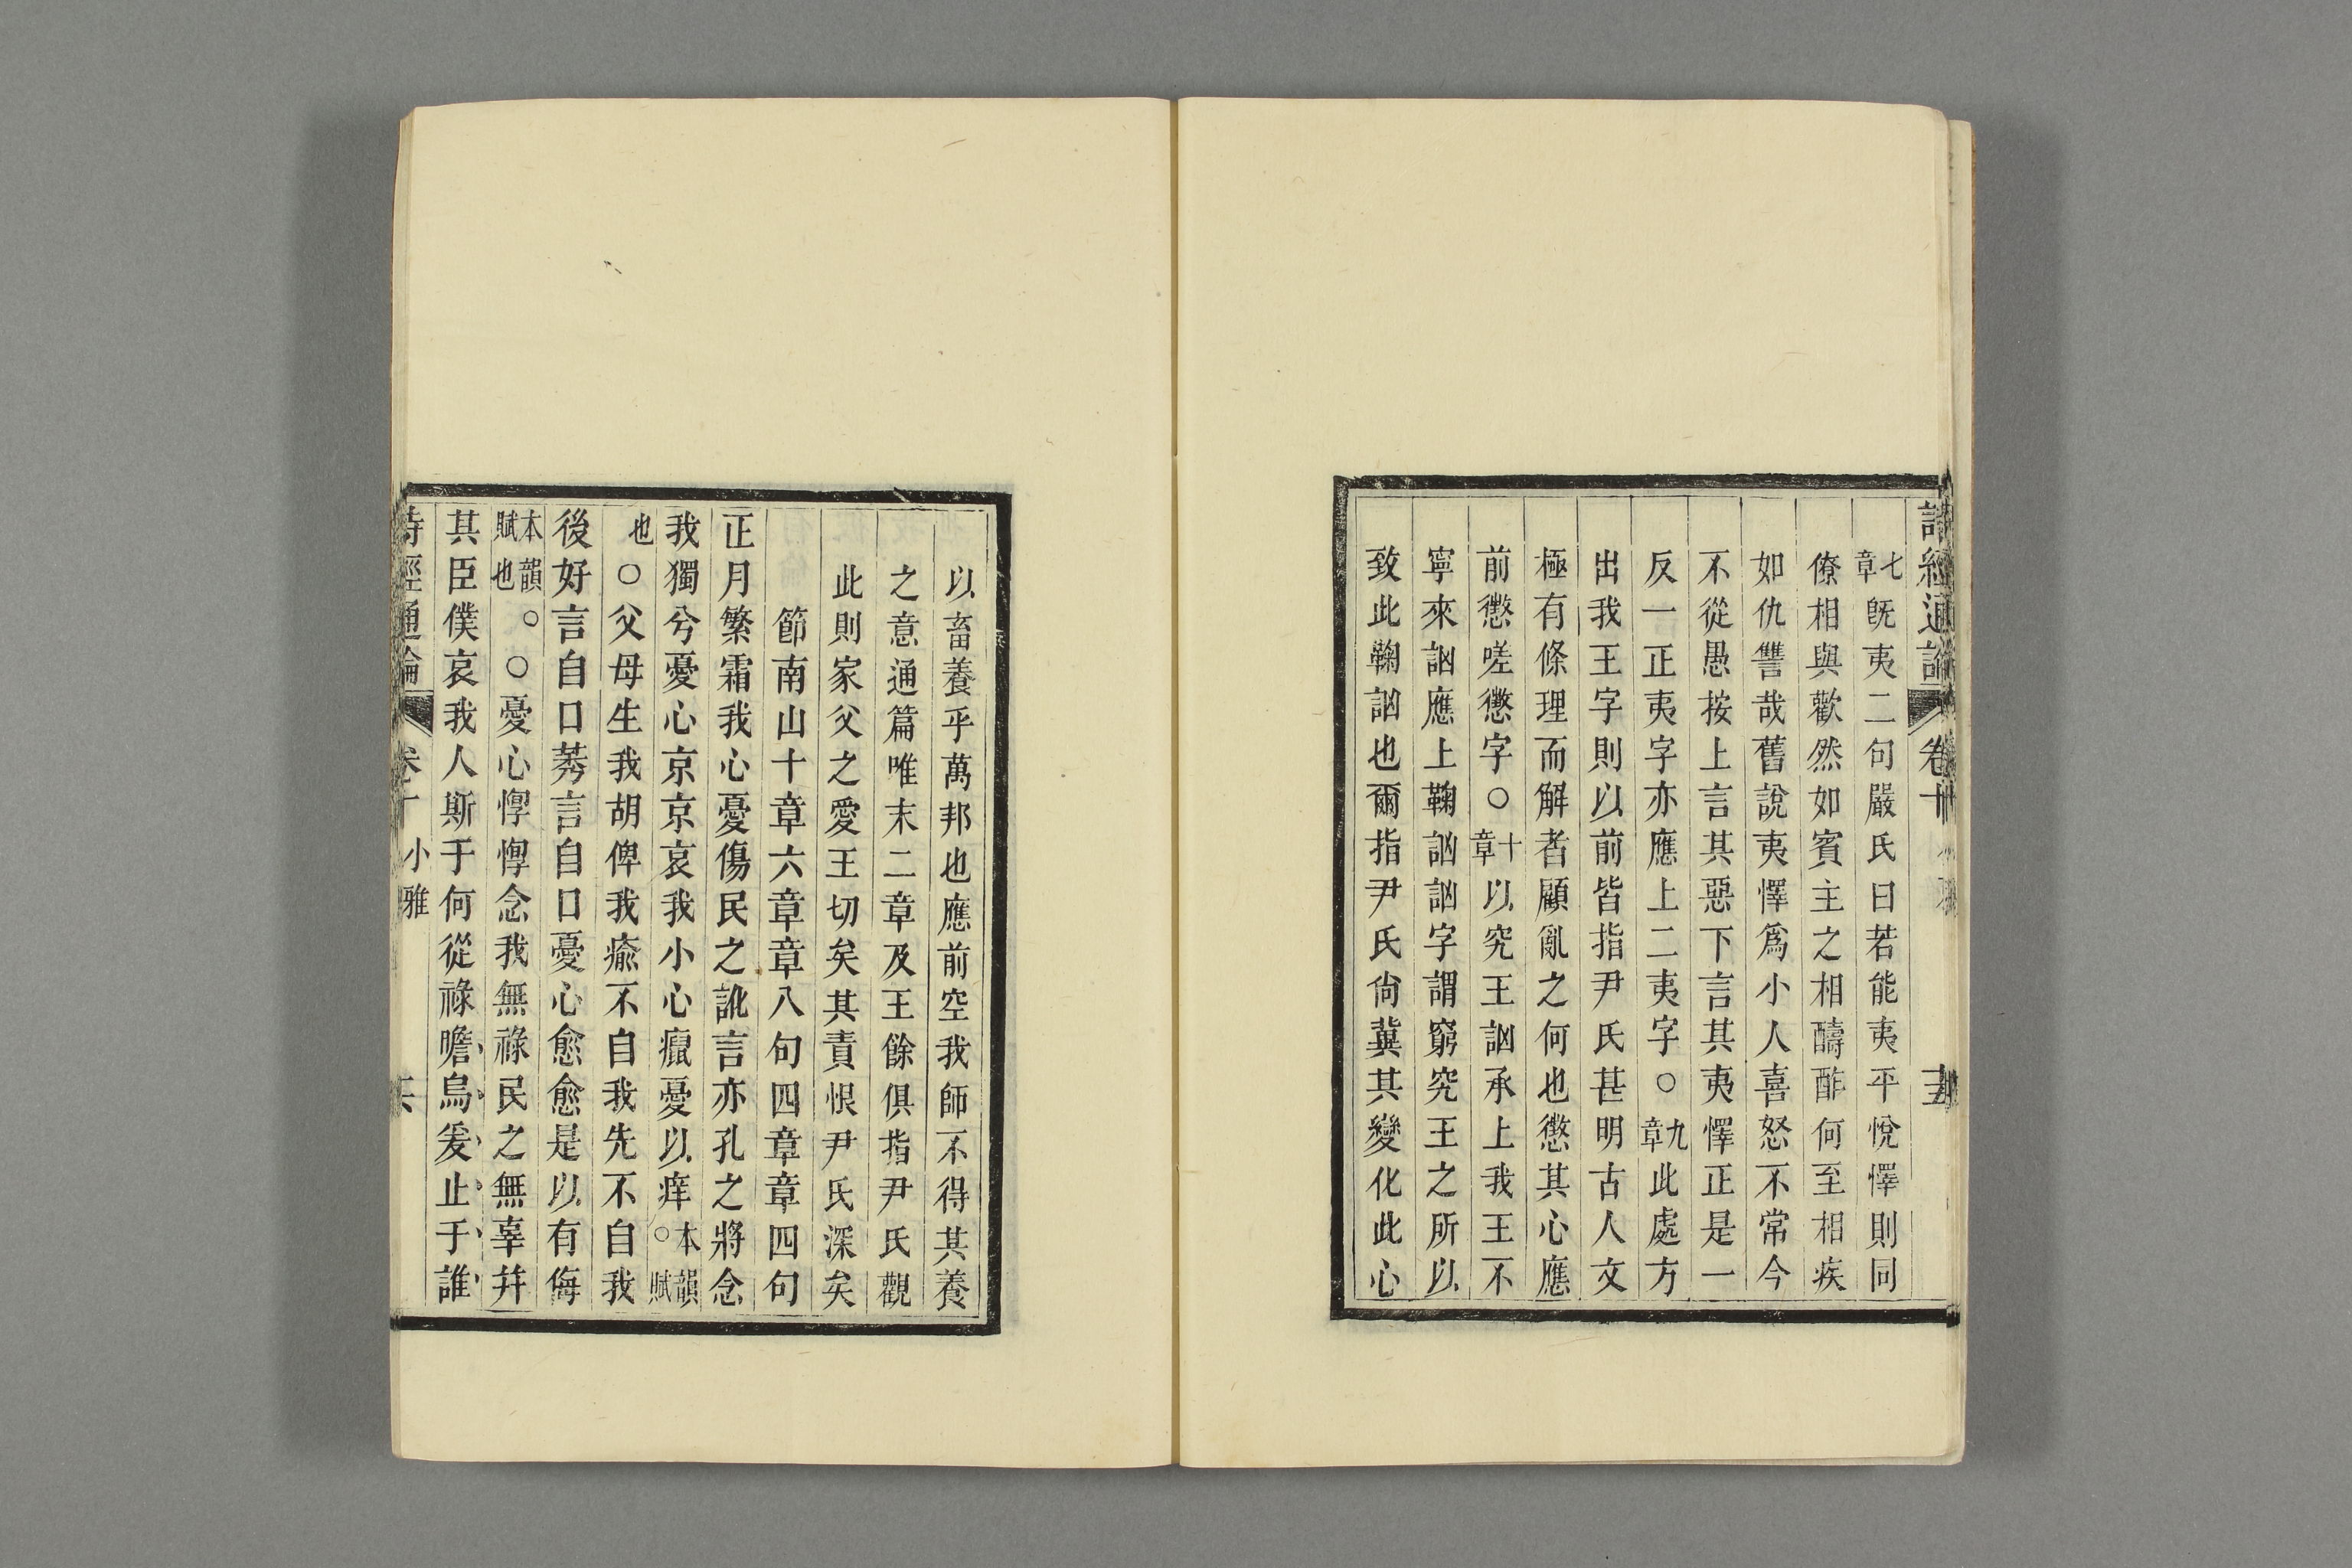 詩經通論 卷十
七章旣夷二句嚴氏曰若能夷平悅懌則同
僚相與歡然如賓主之相醻酢何至相疾
如仇讐哉舊說夷懌爲小人喜怒不常今
不從愚按上言其惡下言其夷懌正是一
反一正夷字亦應上二夷字○九章此處方
出我王字則以前皆指尹氏甚明古人文
極有條理而解者顧亂之何也懲其心應
前懲嗟懲字○十章以究王訩承上我王不
寧來訩應上鞠訩訩字謂窮究王之所以
致此鞠訩也爾指尹氏尙冀其變化此心
以畜養乎萬邦也應前空我師不得其養
之意通篇唯末二章及王餘俱指尹氏觀
此則家父之愛王切矣其責恨尹氏深矣
節南山十章六章章八句四章章四句
正月繁霜我心憂傷民之訛言亦孔之將念
我獨兮憂心京京哀我小心癙憂以痒○本韻賦
也○父母生我胡俾我瘉不自我先不自我
後好言自口莠言自口憂心愈愈是以有侮
本韻賦也○○憂心惸惸念我無祿民之無辜幷
其臣僕哀我人斯于何從祿瞻烏爰止于誰
詩經通論 卷十 小雅